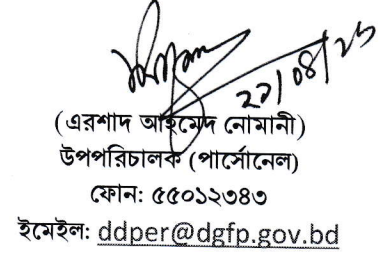 ২১/০৪/২৬
(এরশাদ আহমেদ নোমানী)
উপপরিচালক (পার্সোনেল)
ফোন: ৫৫০১২৩৪৩
ইমেইল: ddper@dgfp.gov.bd